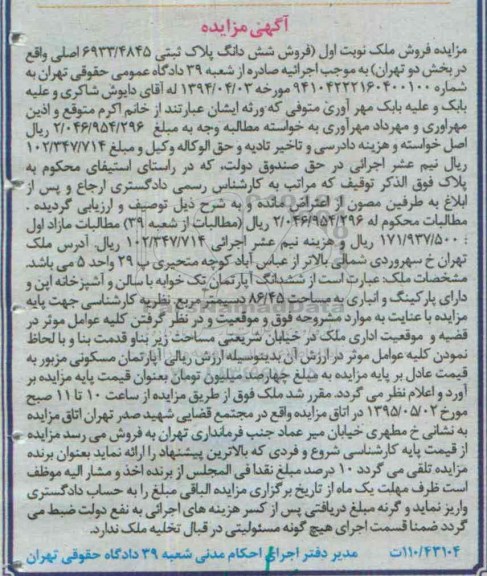 آگهی مزایده
مزایده فروش ملک نوبت اول (فروش شش دانگ پلاک ثبتی ۶۹۳۳/۴۸۴۵ اصلی واقع
در بخش دو تهران) به موجب اجرائیه صادره از شعبه ۳۹ دادگاه عمومی حقوقی تهران به
شماره ۹۴۱۰۴۲۲۲۱۶۰۴۰۰۱۰۰ مورخه ۱۳۹۴/۰۴/۰۳ له آقای داریوش شاکری و علیه
بابک و علیه بابک مهر آوری متوفی که ورثه ایشان عبارتند از خانم اکرم متوقع و اذین
مهراوری و مهرداد مهرآوری به خواسته مطالبه وجه به مبلغ ۲/۰۴۶/۹۵۴/۲۹۶ ریال
اصل خواسته و هزینه دادرسی و تاخیر تادیه و حق الوکاله وکیل و مبلغ ۱۰۲/۳۴۷/۷۱۴
ریال نیم عشر اجرائی در حق صندوق دولت، که در راستای استیفای محکوم به
پلاک فوق الذکر توقیف که مراتب به کارشناس رسمی دادگستری ارجاع و پس از
ابلاغ به طرفین مصون از اعتراض مانده و به شرح ذیل توصیف و ارزیابی گردیده .
مطالبات محکوم له ۲/۰۴۶/۹۵۴/۲۹۶ ریال (مطالبات از شعبه ۳۹) مطالبات مازاد اول
: ۱۷۱/۹۳۷/۵۰۰ ریال و هزینه نیم عشر اجرائی ۱۰۲/۳۴۷/۷۱۴ ریال. آدرس ملک
تهران خ سهروردی شمالی بالاتر از عباس آباد کوچه متحیری پ ۲۹ واحد ۵ می باشد.
مشخصات ملک: عبارت است از ششدانگ آپارتمان تک خوابه با سالن و آشپزخانه اپن و
دارای پارکینگ و انباری به مساحت ۸۶/۴۵ دسیمتر مربع نظریه کارشناسی جهت پایه
مزایده با عنایت به موارد مشروحه فوق و موقعیت و در نظر گرفتن کلیه عوامل موثر در
قضیه و موقعیت اداری ملک در خیابان شریعتی مساحت زیر بناو قدمت بنا و با لحاظ
نمودن کلیه عوامل موثر در ارزش آن بدینوسیله ارزش ریالی آپارتمان مسکونی مزبور به
قیمت عادل بر پایه مزایده به مبلغ چهارصد میلیون تومان بعنوان قیمت پایه مزایده بر
آورد و اعلام نظر می گردد. مقرر شد ملک فوق از طریق مزایده از ساعت ۱۰ تا ۱۱ صبح
مورخ ۱۳۹۵/۰۵/۰۲ در اتاق مزایده واقع در مجتمع قضایی شهید صدر تهران اتاق مزایده
به نشانی خ مطهری خیابان میر عماد جنب فرمانداری تهران به فروش می رسد مزایده
از قیمت پایه کارشناسی شروع و فردی که بالاترین پیشنهاد را ارائه نماید بعنوان برنده
مزایده تلقی می گردد ۱۰ درصد مبلغ نقدا فی المجلس از برنده اخذ و مشار الیه موظف
است ظرف مهلت یک ماه از تاریخ برگزاری مزایده الباقی مبلغ را به حساب دادگستری
واریز نماید و گرنه مبلغ دریافتی پس از کسر هزینه های اجرائی به نفع دولت ضبط می
گردد ضمنا قسمت اجرای هیچ گونه مسئولیتی در قبال تخلیه ملک ندارد.
۱۱۰/۴۳۱۰۴ت مدیر دفتر اجرای احکام مدنی شعبه ۳۹ دادگاه حقوقی تهران